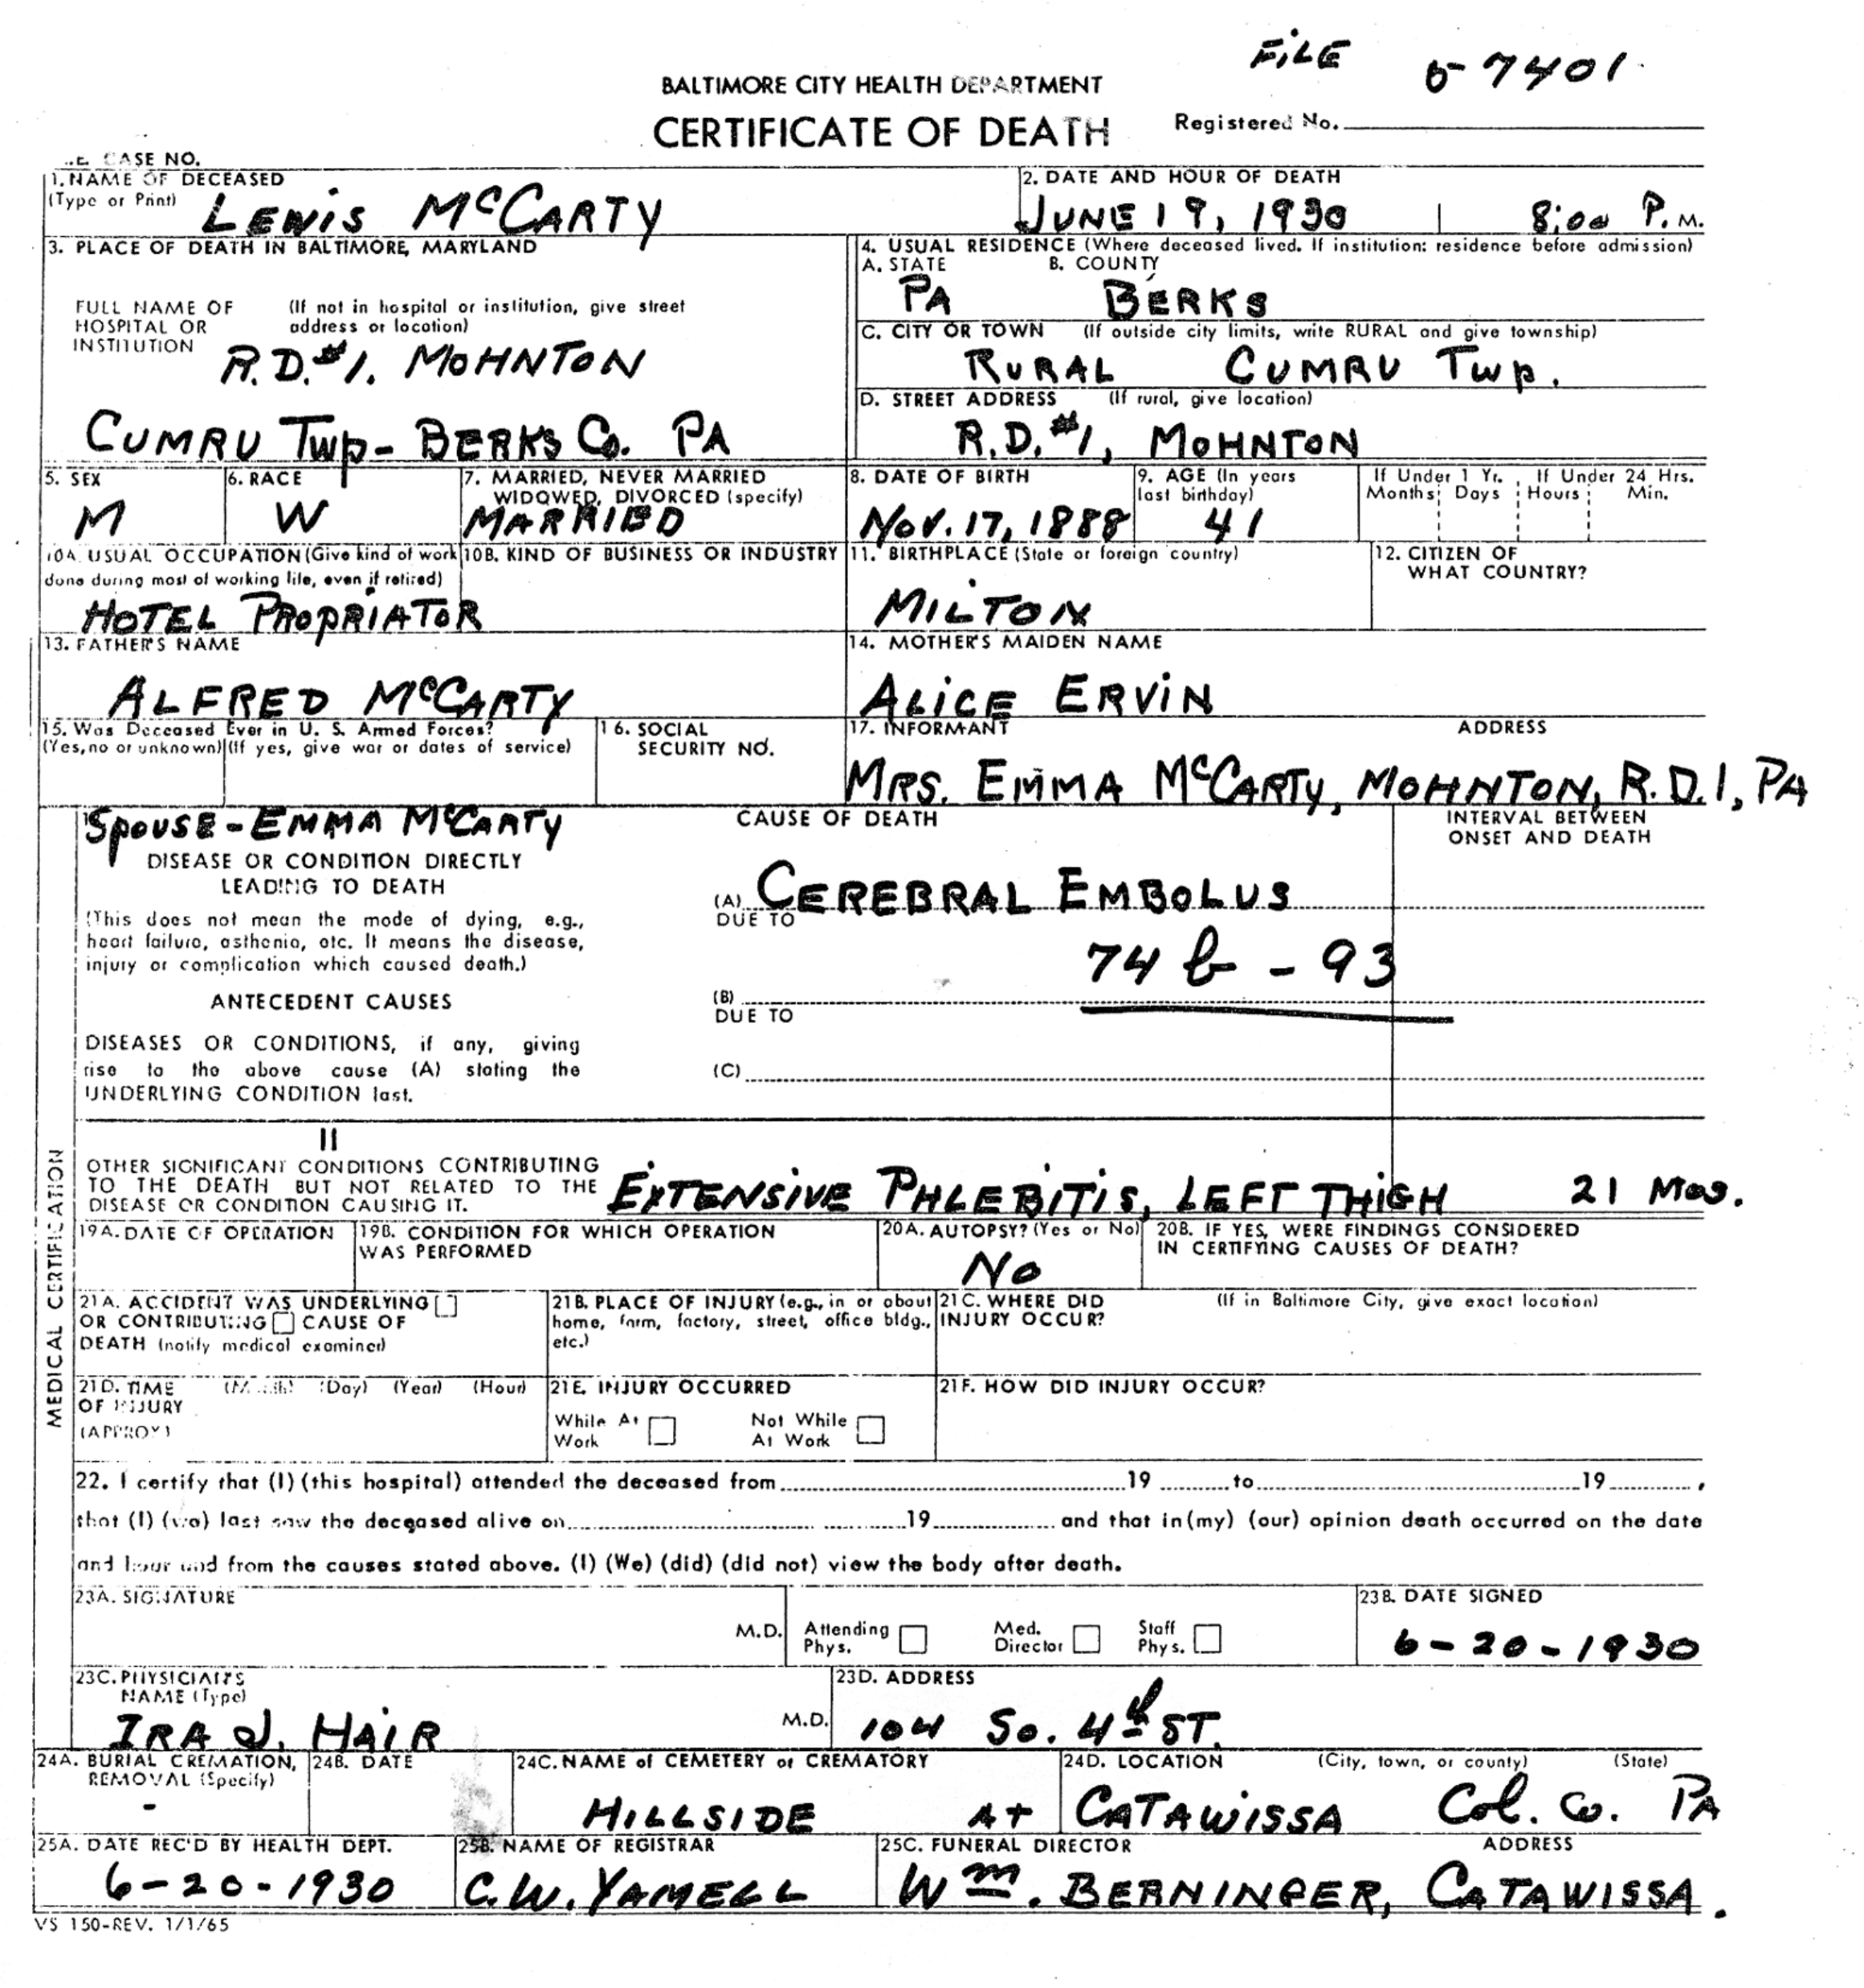 FILE 57401
BALTIMORE CITY HEALTH DEPARTMENT
CERTIFICATE OF DEATH
Registered No.
CASE NO.
1. NAME OF DECEASED
(Type or Print) LEWIS McCARTY
2. DATE AND HOUR OF DEATH
JUNE 19, 1930 8:00 P. M.
3. PLACE OF DEATH IN BALTIMORE, MARYLAND
FULL NAME OF HOSPITAL OR INSTITUTION (If not in hospital or institution, give street address or location)
R.D. #1. MOHNTON
CUMRU TWP - BERKS CO. PA
4. USUAL RESIDENCE (Where deceased lived. If institution: residence before admission)
A. STATE B. COUNTY
PA BERKS
C. CITY OR TOWN (If outside city limits, write RURAL and give township)
RURAL CUMRU TWP.
D. STREET ADDRESS (If rural, give location)
R.D. #1, MOHNTON
5. SEX
M
6. RACE
W
7. MARRIED, NEVER MARRIED
WIDOWED, DIVORCED (specify)
MARRIED
8. DATE OF BIRTH
NOV. 17, 1888
9. AGE (In years
last birthday)
41
If Under 1 Yr. If Under 24 Hrs.
Months Days Hours Min.
10A. USUAL OCCUPATION (Give kind of work
done during most of working life, even if retired)
HOTEL PROPRIATOR
10B. KIND OF BUSINESS OR INDUSTRY
11. BIRTHPLACE (State or foreign country)
MILTON
12. CITIZEN OF
WHAT COUNTRY?
13. FATHER'S NAME
ALFRED McCARTY
14. MOTHER'S MAIDEN NAME
ALICE ERVIN
15. Was Deceased Ever in U. S. Armed Forces?
(Yes, no or unknown) (If yes, give war or dates of service)
16. SOCIAL
SECURITY NO.
17. INFORMANT ADDRESS
MRS. EMMA McCARTY, MOHNTON, R.D.1, PA
SPOUSE - EMMA McCARTY
CAUSE OF DEATH
INTERVAL BETWEEN
ONSET AND DEATH
DISEASE OR CONDITION DIRECTLY
LEADING TO DEATH
(This does not mean the mode of dying, e.g.,
heart failure, asthenia, etc. It means the disease,
injury or complication which caused death.)
(A) CEREBRAL EMBOLUS
DUE TO
74 b - 93
ANTECEDENT CAUSES
(B)
DUE TO
DISEASES OR CONDITIONS, if any, giving
rise to the above cause (A) stating the
UNDERLYING CONDITION last.
(C)
MEDICAL CERTIFICATION
II
OTHER SIGNIFICANT CONDITIONS CONTRIBUTING
TO THE DEATH BUT NOT RELATED TO THE
DISEASE OR CONDITION CAUSING IT.
EXTENSIVE PHLEBITIS, LEFT THIGH 21 MOS.
19A. DATE OF OPERATION
19B. CONDITION FOR WHICH OPERATION
WAS PERFORMED
20A. AUTOPSY? (Yes or No)
No
20B. IF YES, WERE FINDINGS CONSIDERED
IN CERTIFYING CAUSES OF DEATH?
21A. ACCIDENT WAS UNDERLYING
OR CONTRIBUTING CAUSE OF
DEATH (notify medical examiner)
21B. PLACE OF INJURY (e.g., in or about
home, farm, factory, street, office bldg.,
etc.)
21C. WHERE DID
INJURY OCCUR?
(If in Baltimore City, give exact location)
21D. TIME (Month) (Day) (Year) (Hour)
OF INJURY
(APPROX)
21E. INJURY OCCURRED
While At Work
Not While At Work
21F. HOW DID INJURY OCCUR?
22. I certify that (I) (this hospital) attended the deceased from 19 to 19 ,
that (I) (we) last saw the deceased alive on 19 and that in (my) (our) opinion death occurred on the date
and hour and from the causes stated above. (I) (We) (did) (did not) view the body after death.
23A. SIGNATURE
M.D.
Attending Phys.
Med. Director
Staff Phys.
23B. DATE SIGNED
6-20-1930
23C. PHYSICIAN'S
NAME (Type)
IRA J. HAIR M.D.
23D. ADDRESS
104 So. 4th ST.
24A. BURIAL CREMATION,
REMOVAL (Specify)
-
24B. DATE
24C. NAME of CEMETERY or CREMATORY
HILLSIDE AT
24D. LOCATION (City, town, or county) (State)
CATAWISSA COL. CO. PA
25A. DATE REC'D BY HEALTH DEPT.
6-20-1930
25B. NAME OF REGISTRAR
C.W. YAMELL
25C. FUNERAL DIRECTOR ADDRESS
Wm. BERNINGER, CATAWISSA.
VS 150-REV. 1/1/65